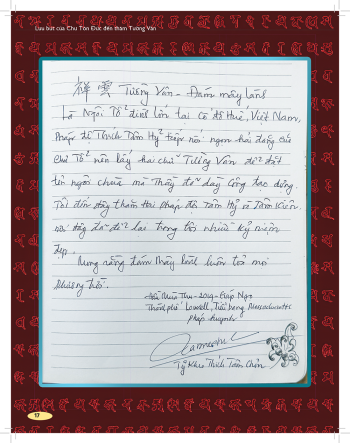 Lưu bút của Chư Tôn Đức đến thăm Tường Vân
祥雲 Tường Vân - Đám mây lành
Là Ngôi Tổ đình lớn tại Cố đô Huế, Việt Nam,
Pháp đệ Thích Tâm Hỷ tiếp nối ngọn hải đăng của
Chư Tổ nên lấy hai chữ Tường Vân để đặt
tên ngôi chùa mà Thầy đã dày công tạo dựng.
Tôi đến đây thăm hai pháp đệ Tâm Hỷ và Tâm Kiến
nơi đây đã để lại trong tôi nhiều kỷ niệm
đẹp.
Mong rằng đám mây lành luôn tỏa mọi
phương trời.
Mùa Thu - 2014 - Giáp Ngọ
Thành phố Lowell, Tiểu bang Massachusetts
Pháp huynh
Tỳ Kheo Thích Tâm
17